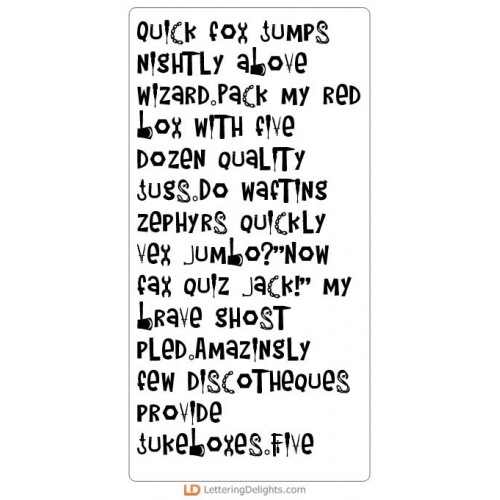 Quick fox jumps
nightly above
wizard.Pack my red
box with five
dozen quality
jugs.Do wafting
zephyrs quickly
vex Jumbo?"Now
fax quiz Jack!" my
brave ghost
pled.Amazingly
few discotheques
provide
jukeboxes.Five
LD LetteringDelights.com